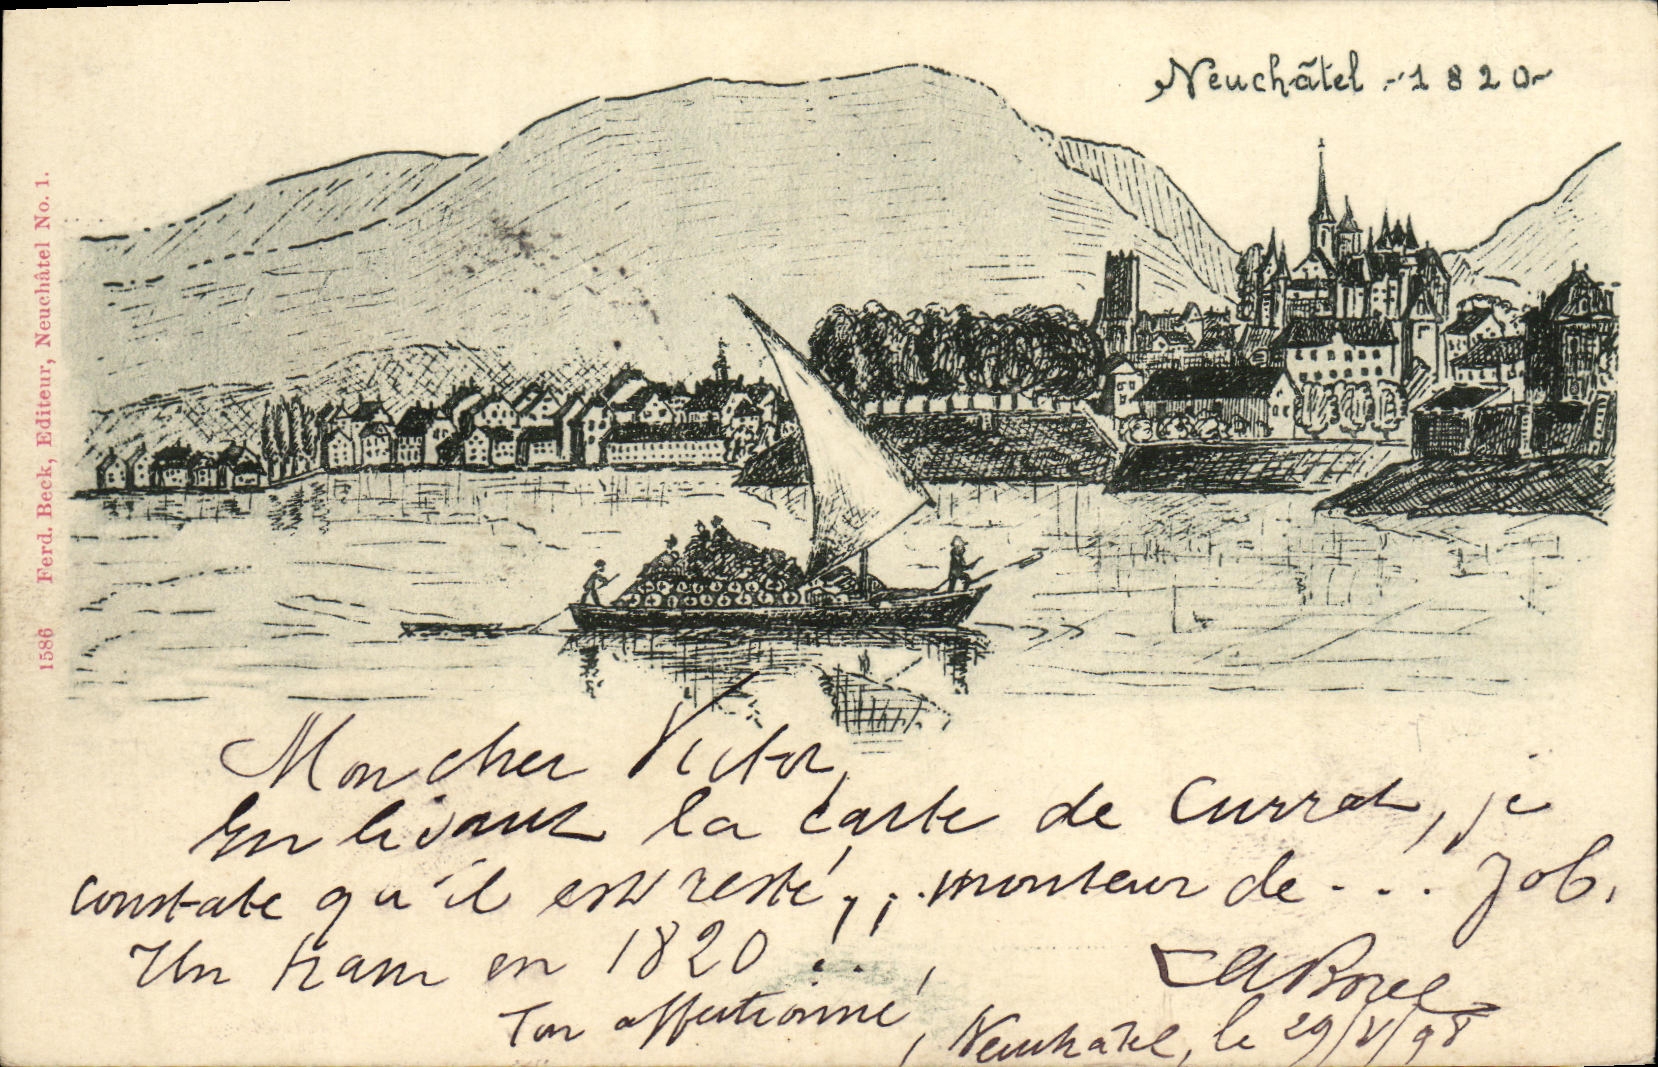 Neuchâtel - 1820 -
1586 Ferd. Beck, Editeur, Neuchâtel No. 1.
Mon cher Victor,
En lisant la carte de Currat, je
constate qu'il est resté, monteur de - . . . Job.
Un tram en 1820 !..
Ton affectionné,
Borel
Neuchâtel, le 29/V/98